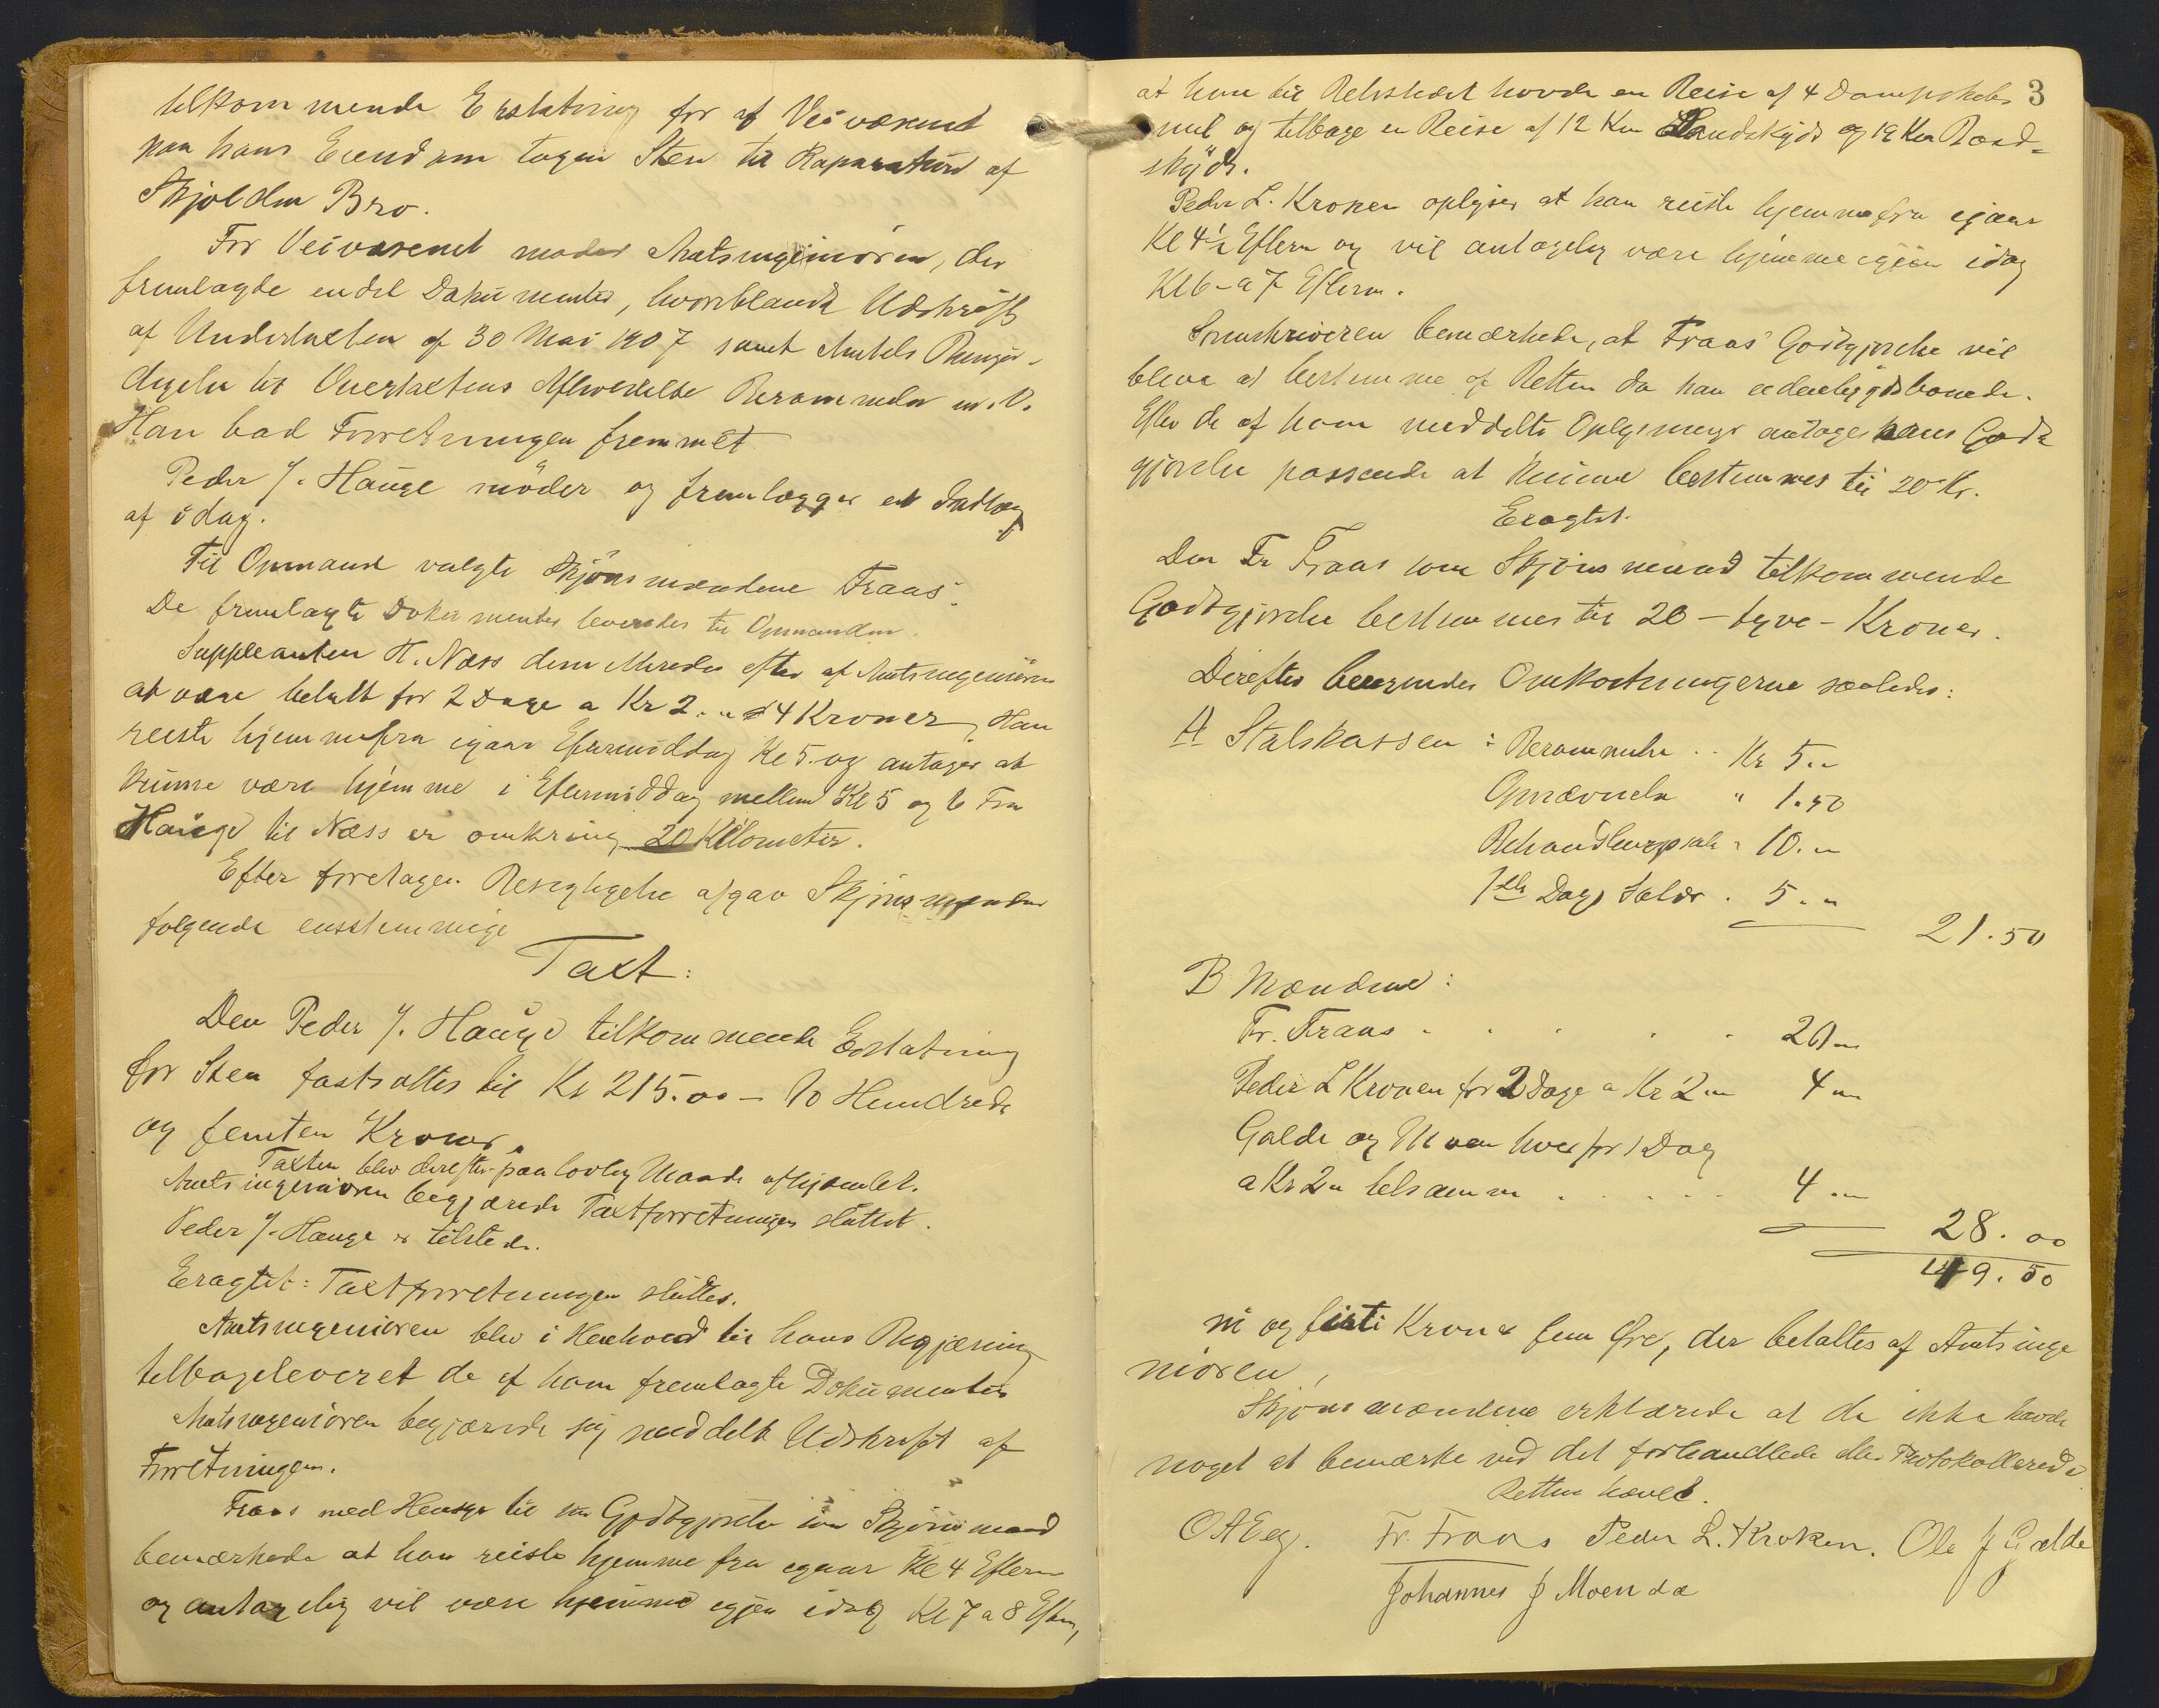 tilkommende Erstatning for af Veivæsenet
paa hans Eiendom tagen Sten til Reparation af
Skjolden Bro.
For Veivæsenet møder Amtsingeniøren, der
fremlagde endel Dokumenter, hvoriblandt Udskrift
af Undertaxten af 30 Mai 1907 samt Amtets
til Overtaxtens Afholdelse Berammelse m.V.
Han bad Forretningen fremmet
Peder J. Hauge møder og fremlægger et Indlæg
af idag.
Til Opmand valgte Skjönsmændene Fraas.
De fremlagte Dokumenter leveredes til Opmanden.
Suppleanten H. Næss efter af Amtsingeniøren
at være betalt for 2 Dage a Kr 2.00 4 Kroner, Han
reiste hjemmefra igaar Eftermiddag Kl 5 og antager at
kunne være hjemme i Eftermiddag mellem Kl 5 og 6 Fra
Hauge til Næss er omkring 20 Kilometer.
Efter foretagen Besigtigelse afgav Skjönsmænden
følgende enstemmige
Taxt:
Den Peder J. Hauge tilkommende Erstatning
for Sten fastsattes til Kr 215.00 – To Hundrede
og femten Kroner.
Taxten blev derefter paa lovlig Maade afhjemlet.
Amtsingeniøren begjærede Taxtforretningen sluttet.
Peder J. Hauge er tilstede.
Eragtet: Taxtforretningen sluttes.
Amtsingeniøren blev i Henhold til hans Begjæring
tilbageleveret de af ham fremlagte Dokumenter
Amtsingeniøren begjærede sig meddelt Udskrift af
Forretningen.
Fraas med Hensyn til sin Godtgjørelse som Skjönsmand
bemærkede at han reiste hjemme fra igaar Kl 4 Efterm
og antagelig vil være hjemme igjen idag Kl 7 a 8 Efterm,
3
at han til Retsstedet havde en Reise af 4 Dampskibs
mil og tilbage en Reise af 12 Km Landskyds og 19 Km Baad-
skyds.
Peder L. Kroken oplyser at han reiste hjemmefra igaar
Kl 4½ Efterm og vil antagelig være hjemme igjen idag
Kl 6 a 7 Efterm.
Sorenskriveren bemærkede, at Fraas' Godtgjørelse vil
blive at bestemme af Retten da han er udenbygdsboende.
Efter de af ham meddelte Oplysninger antages hans Godt
gjørelse passende at kunne bestemmes til 20 Kr.
Eragtet.
Den Fr Fraas som Skjønsmand tilkommende
Godtgjørelse bestemmes til 20 – tyve – Kroner.
Derefter beregnedes Omkostningerne saaledes:
A Statskassen: Berammelse .. Kr 5.00
Opnævnelse " 1.50
Behandlingssal " 10.00
1ste Dags Salær . 5.00
21.50
B Mændene:
Fr. Fraas . . . . . 20.00
Peder L Kroken for 2 Dage a Kr 2.00 4.00
Galde og Moen hver for 1 Dag
a Kr 2.00 tilsammen . . . . . 4.00
28.00
49.50
ni og firti Kroner fem Øre, der betaltes af Amtsinge
niøren,
Skjønsmændene erklærede at de ikke havde
noget at bemærke ved det forhandlede eller Protokollerede
Retten hævet.
O A Eeg. Fr. Fraas Peder L. Kroken. Ole J Galde
Johannes J Moen